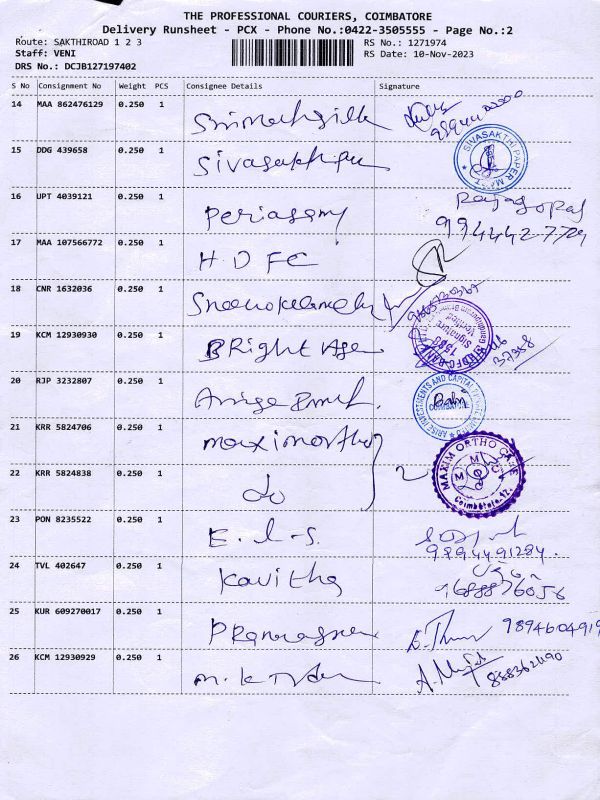 THE PROFESSIONAL COURIERS, COIMBATORE
Delivery Runsheet - PCX - Phone No.:0422-3505555 - Page No.:2
Route: SAKTHIROAD 1 2 3 RS No.: 1271974
Staff: VENI RS Date: 10-Nov-2023
DRS No.: DCJB127197402
S No Consignment No Weight PCS Consignee Details Signature
14 MAA 862476129 0.250 1
15 DDG 439658 0.250 1 SIVASAKTHI PAPER MART
16 UPT 4039121 0.250 1 Periasamy Rajagopal
9944427729
17 MAA 107566772 0.250 1 HDFC
18 CNR 1632036 0.250 1
19 KCM 12930930 0.250 1 BRight Age Signature Verified
37358
20 RJP 3232807 0.250 1 ARISE INVESTMENTS AND CAPITAL
COIMBATORE
21 KRR 5824706 0.250 1 maximortho
22 KRR 5824838 0.250 1 do MAXIM ORTHO CARE
M M C
Coimbatore-12.
23 PON 8235522 0.250 1 E.I.S.
9894491284.
24 TVL 402647 0.250 1 Kavitha
25 KUR 609270017 0.250 1 9894604919
26 KCM 12930929 0.250 1